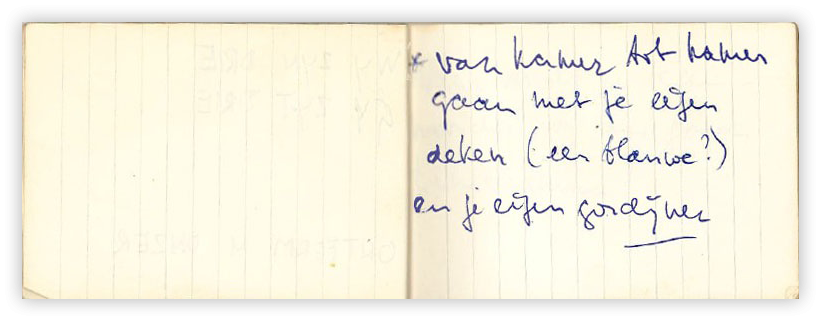 * van kamer tot kamer
gaan met je eigen
deken (een blauwe?)
en je eigen gordijnen